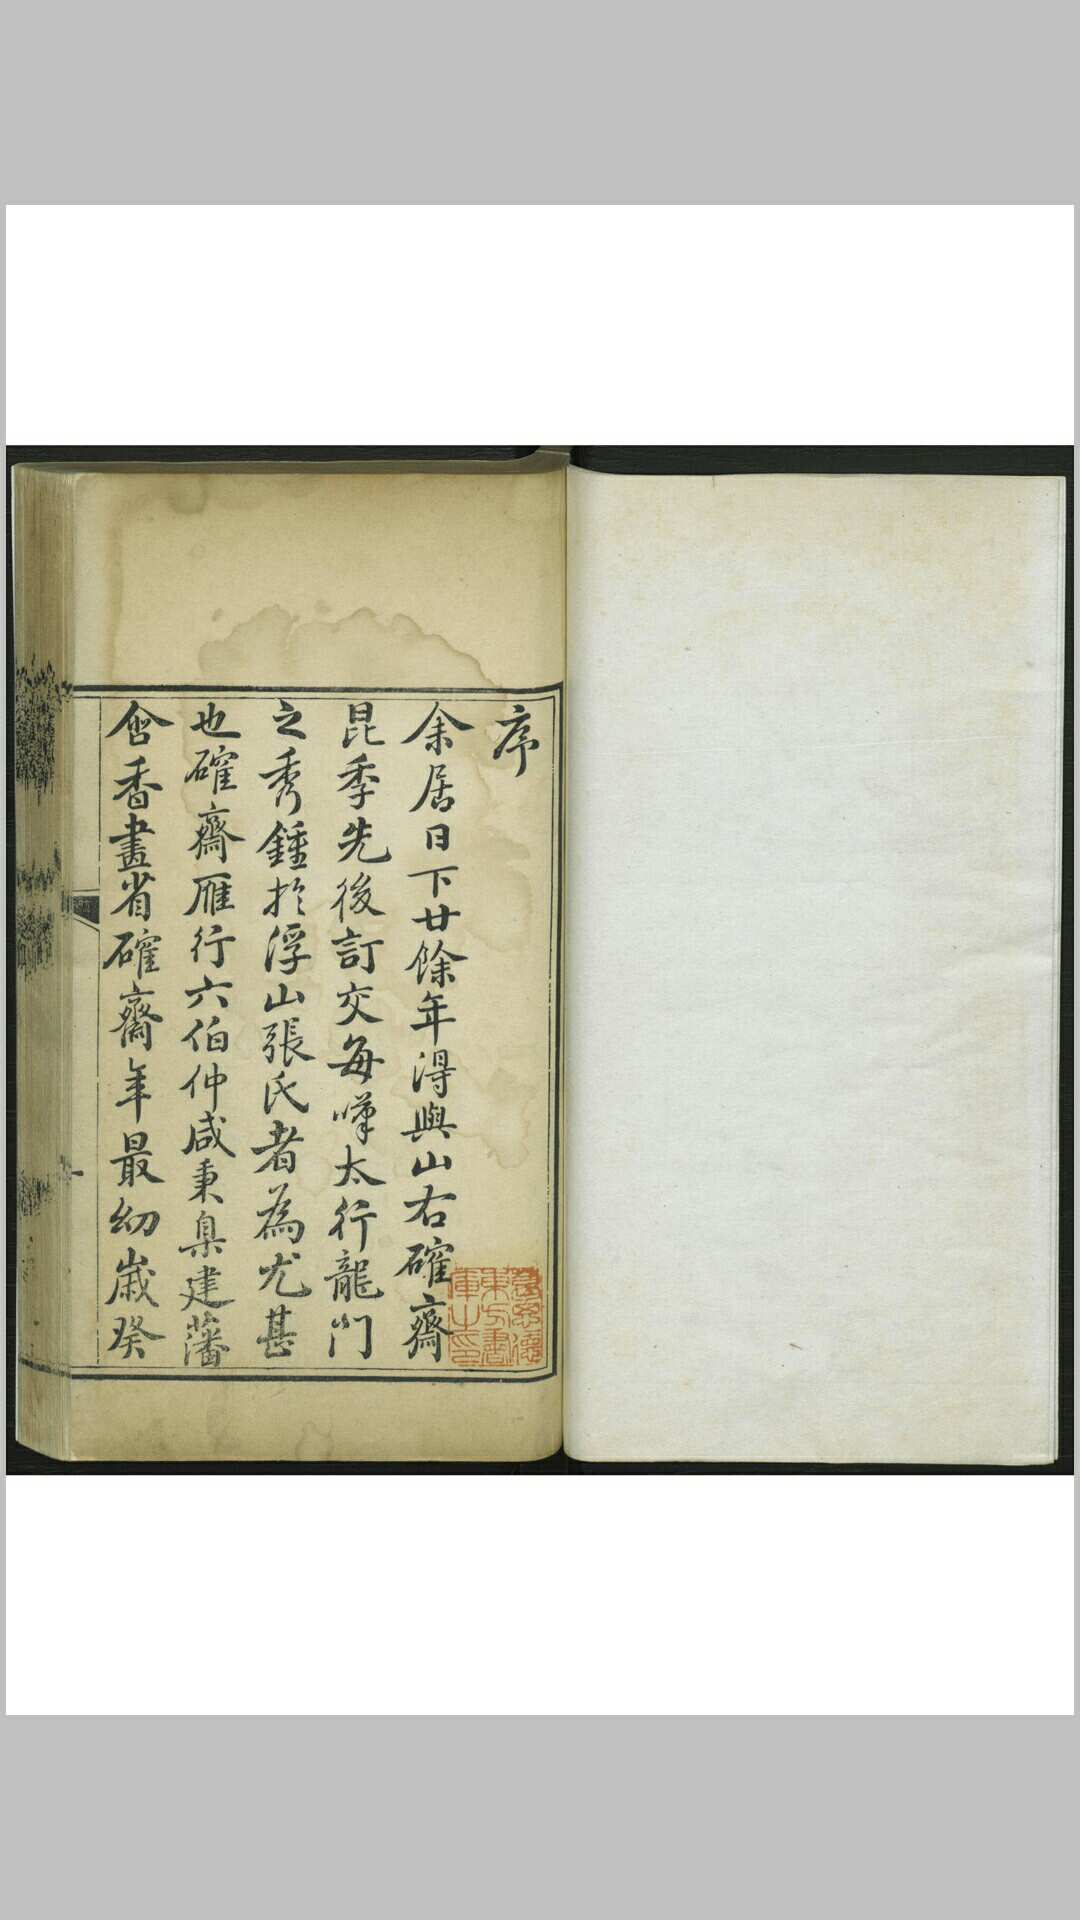 序
余居日下廿餘年得與山右確齋
昆季先後訂交每嘆太行龍門
之秀鍾於浮山張氏者為尤甚
也確齋雁行六伯仲咸秉臬建藩
含香畫省確齋年最幼歲癸